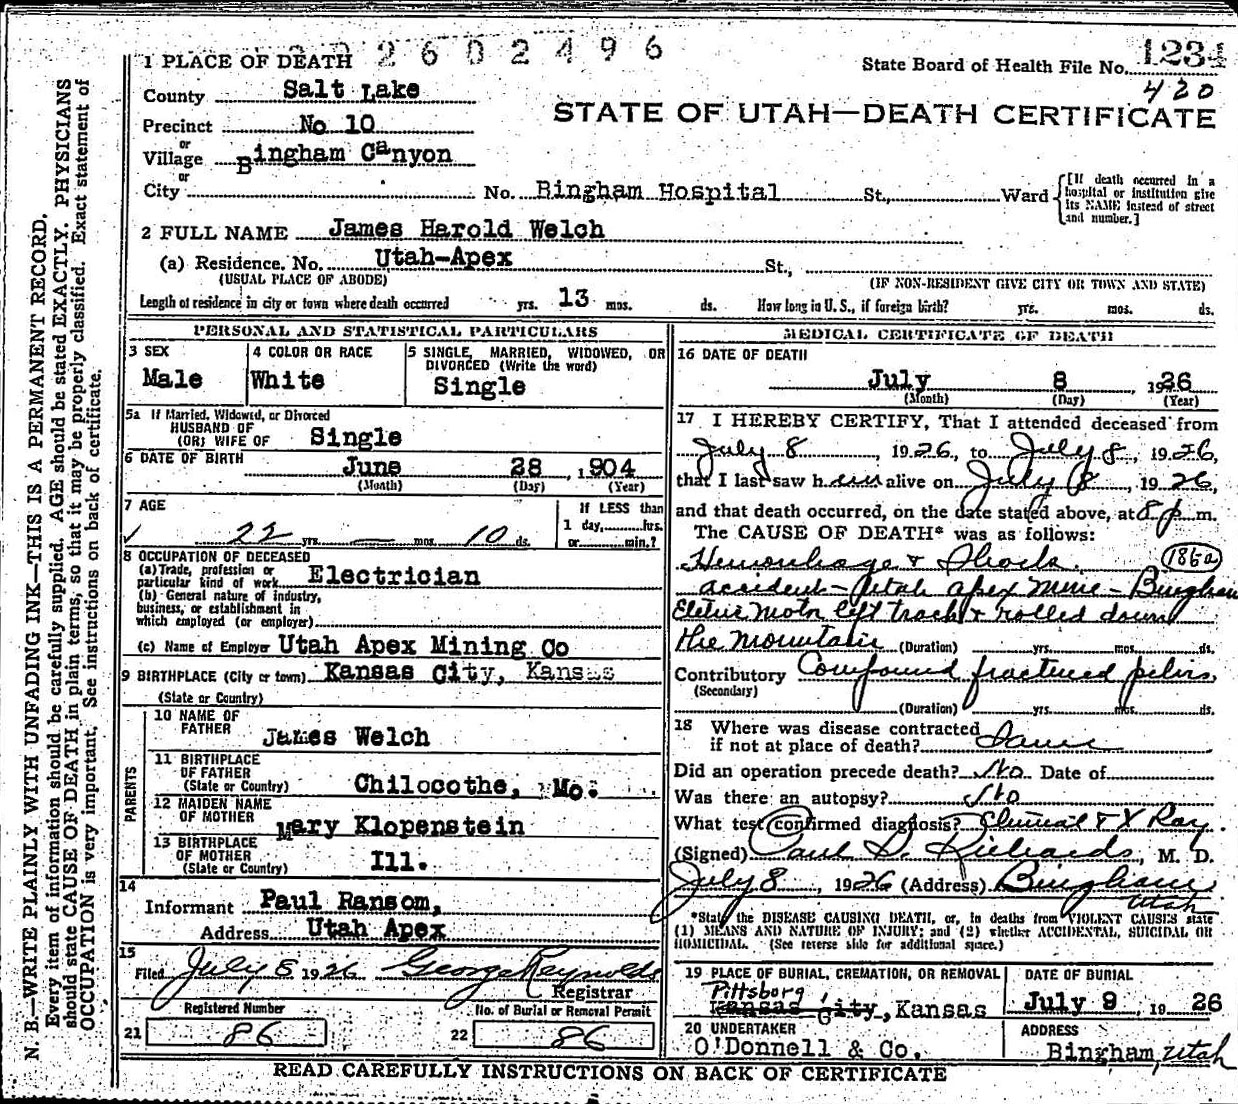 2 2 6 0 2 4 9 6
1234
1 PLACE OF DEATH
State Board of Health File No.
420
County Salt Lake
STATE OF UTAH—DEATH CERTIFICATE
Precinct No 10
or
Village Bingham Canyon
or
City No. Bingham Hospital St., Ward
[If death occurred in a
hospital or institution give
its NAME instead of street
and number.]
2 FULL NAME James Harold Welch
(a) Residence. No. Utah-Apex St.,
(USUAL PLACE OF ABODE) (IF NON-RESIDENT GIVE CITY OR TOWN AND STATE)
Length of residence in city or town where death occurred yrs. 13 mos. ds. How long in U. S., if foreign birth? yrs. mos. ds.
PERSONAL AND STATISTICAL PARTICULARS
3 SEX
Male
4 COLOR OR RACE
White
5 SINGLE, MARRIED, WIDOWED, OR
DIVORCED (Write the word)
Single
5a If Married, Widowed, or Divorced
HUSBAND OF
(OR) WIFE OF Single
6 DATE OF BIRTH June 28, 1904
(Month) (Day) (Year)
7 AGE
22 yrs. — mos. 10 ds.
If LESS than
1 day, hrs.
or min.?
8 OCCUPATION OF DECEASED
(a) Trade, profession or
particular kind of work Electrician
(b) General nature of industry,
business, or establishment in
which employed (or employer)
(c) Name of Employer Utah Apex Mining Co
9 BIRTHPLACE (City or town) Kansas City, Kansas
(State or Country)
PARENTS
10 NAME OF
FATHER James Welch
11 BIRTHPLACE
OF FATHER
(State or Country) Chilocothe, Mo.
12 MAIDEN NAME
OF MOTHER Mary Klopenstein
13 BIRTHPLACE
OF MOTHER
(State or Country) Ill.
14
Informant Paul Ransom,
Address Utah Apex
15
Filed July 5 1926 George Reynolds
Registrar
Registered Number
21 86
No. of Burial or Removal Permit
22 86
MEDICAL CERTIFICATE OF DEATH
16 DATE OF DEATH
July 8 1926
(Month) (Day) (Year)
17 I HEREBY CERTIFY, That I attended deceased from
July 8, 1926, to July 8, 1926,
that I last saw him alive on July 8, 1926,
and that death occurred, on the date stated above, at 8 p m.
The CAUSE OF DEATH* was as follows:
Hemorrhage & Shock. 186a
accident - Utah apex mine - Bingham
Eletric Motor left track & rolled down
the mountain (Duration) yrs. mos. ds.
Contributory Compound fractured pelvis
(Secondary)
(Duration) yrs. mos. ds.
18 Where was disease contracted
if not at place of death? Same
Did an operation precede death? No Date of
Was there an autopsy? No
What test confirmed diagnosis? Clinical & X Ray.
(Signed) Paul S. Richards, M. D.
July 8, 1926 (Address) Bingham
Utah
*State the DISEASE CAUSING DEATH, or, in deaths from VIOLENT CAUSES state
(1) MEANS AND NATURE OF INJURY; and (2) whether ACCIDENTAL, SUICIDAL OR
HOMICIDAL. (See reverse side for additional space.)
19 PLACE OF BURIAL, CREMATION, OR REMOVAL
Pittsburg,
Kansas City, Kansas
DATE OF BURIAL
July 9 1926
20 UNDERTAKER
O'Donnell & Co.
ADDRESS
Bingham, Utah
READ CAREFULLY INSTRUCTIONS ON BACK OF CERTIFICATE
N. B.—WRITE PLAINLY WITH UNFADING INK—THIS IS A PERMANENT RECORD.
Every item of information should be carefully supplied. AGE should be stated EXACTLY. PHYSICIANS
should state CAUSE OF DEATH in plain terms, so that it may be properly classified. Exact statement of
OCCUPATION is very important. See instructions on back of certificate.